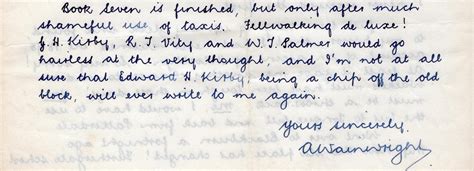 Book Seven is finished, but only after much
shameful use of taxis. Fellwalking de luxe!
J.H. Kirby, R.T. Vity and W.T. Palmer would go
hairless at the very thought, and I'm not at all
sure that Edward H. Kirby, being a chip off the old
block, will ever write to me again.
Yours sincerely,
AWainwright